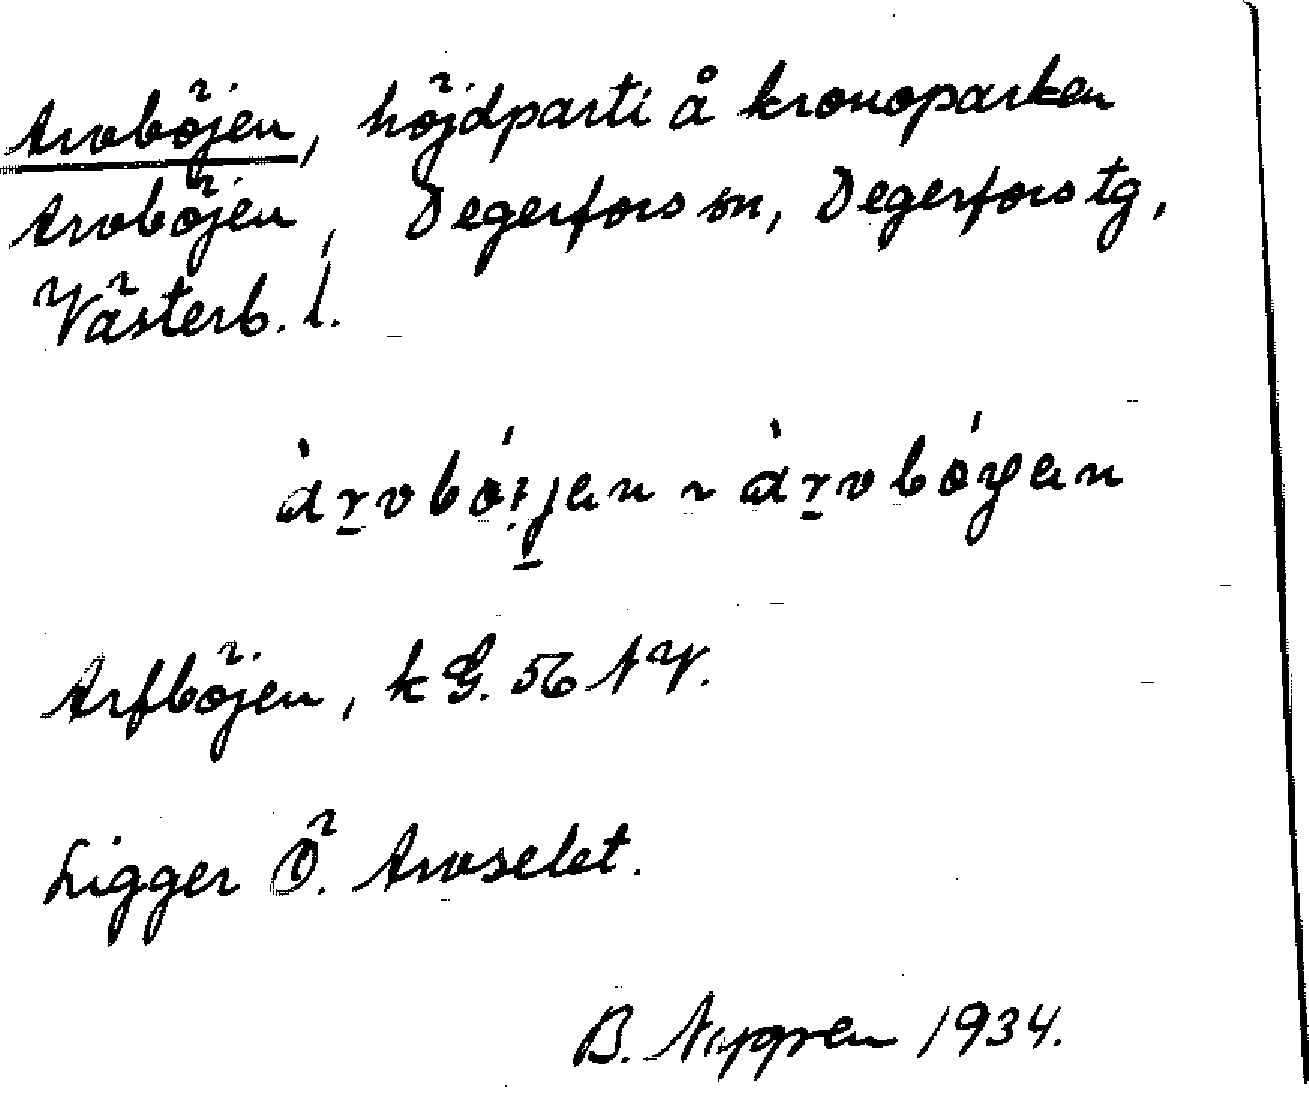 Arvböjen, höjdparti å kronoparken
Arvböjen, Degerfors sn, Degerfors tg,
Västerb. l.
àr̠vbó̤j̠an ~ àr̠vbóyan
Arfböjen, k G. 56 NV.
Ligger Ö. Arvselet.
B. Nygren 1934.